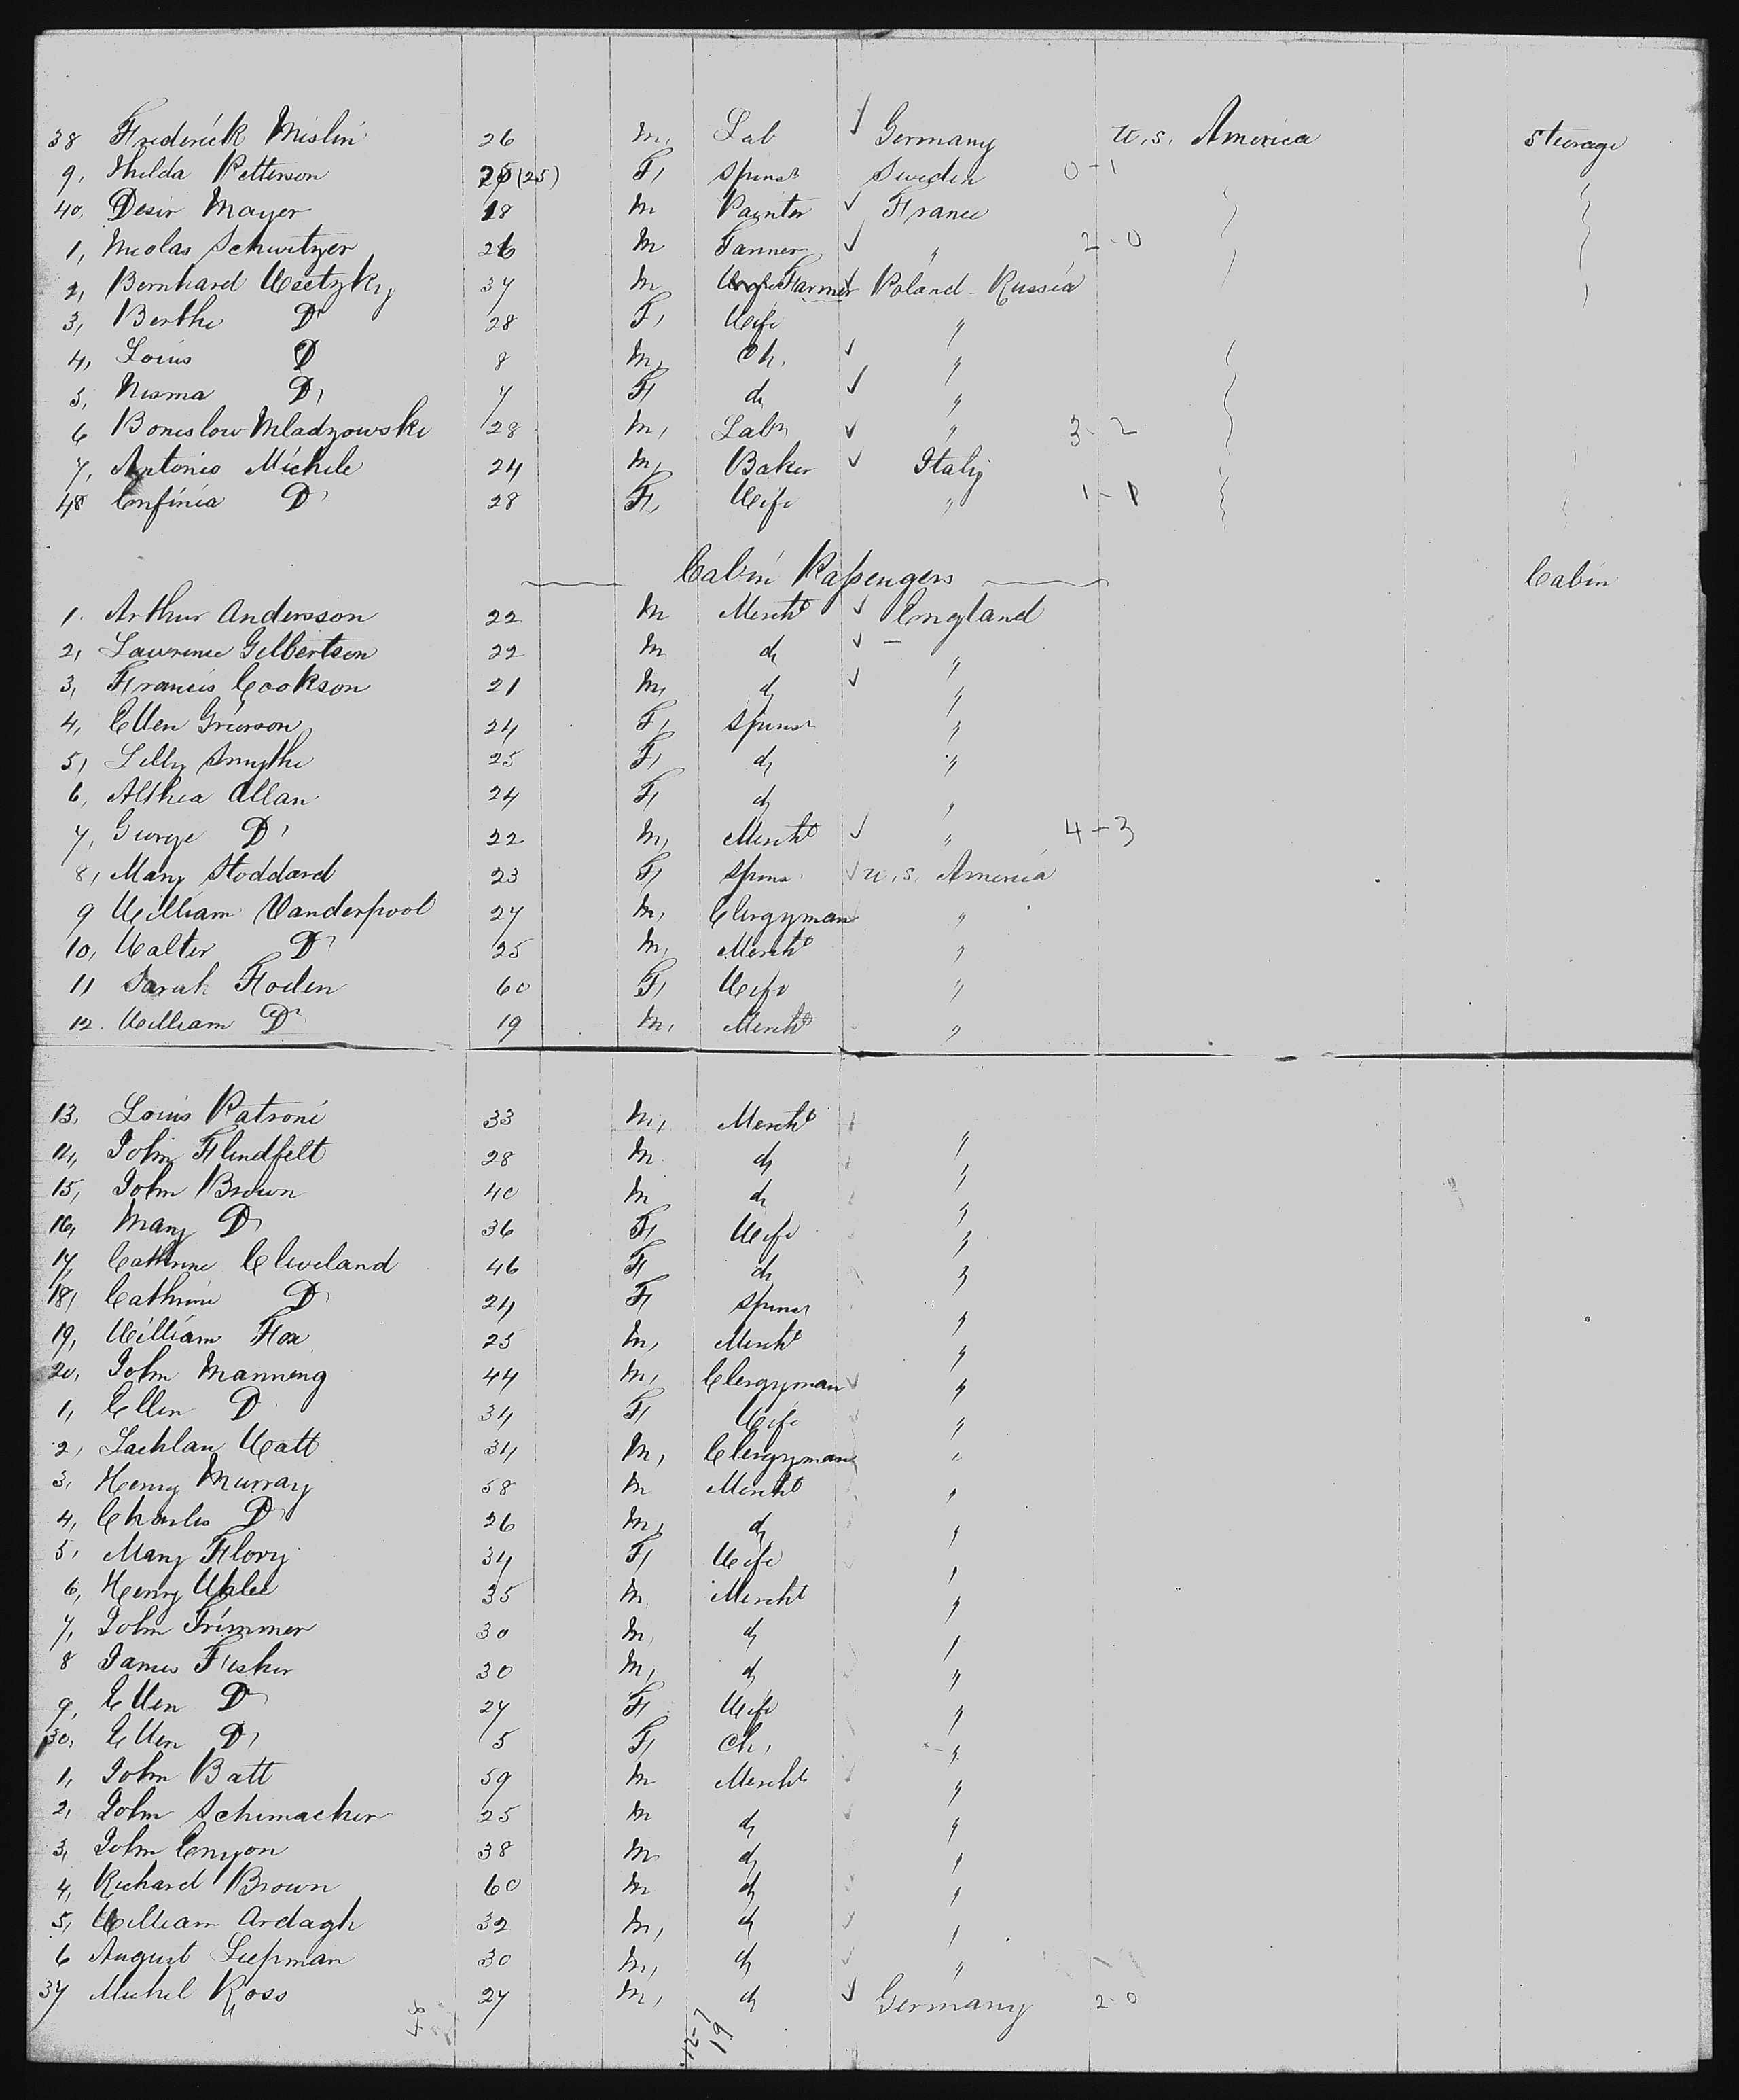 38 Frederick Mislin 26 m, Lab ✓ Germany U.S. America Steerage
9, Hulda Petterson 25 (25) F, Spinsr Sweden 0-1
40, Desir Mayer 18 m Painter ✓ France
1, Nicolas Schwitzer 26 m Tanner ✓ " 2-0
2, Bernhard 37 m Farmer ✓ Poland-Russia
3, Berthe Do 28 F, Wife "
4, Louis Do 8 m, Ch, ✓ "
5, Nisma Do 7 F, do ✓ "
6 Boneslow Mladzowski 28 m, Labr ✓ " 3-2
7, Antonio Michele 24 m, Baker ✓ Italy
48 Enfinia Do 28 F, Wife " 1-1
Cabin Passengers Cabin
1. Arthur Andersson 22 m Mercht ✓ England
2, Lawrence Gilbertson 22 m do ✓ "
3, Francis Cookson 21 m, do ✓ "
4, Ellen Grierson 24 F, Spinsr "
5, Lilly Smythe 25 F, do "
6, Althea Allan 24 F, do "
7, George Do 22 m, Mercht ✓ " 4-3
8, Mary Stoddard 23 F, Spins ✓ U.S. America
9 William Vanderpool 27 m, Clergyman "
10, Walter Do 25 m, Mercht "
11 Sarah Foden 60 F, Wife "
12. William Do 19 m, Mercht "
13, Louis Patroni 33 m, Mercht "
14, John Flindfelt 28 m do "
15, John Brown 40 m do "
16, Mary Do 36 F, Wife "
17, Cathrine Cleveland 46 F, do "
18, Cathrine Do 24 F, Spinsr "
19, William Fox 25 m, Mercht "
20, John Manning 44 m, Clergyman ✓ "
1, Ellen Do 34 F, Wife "
2, Lachlan Watt 34 m, Clergyman "
3, Henry Murray 58 m Mercht "
4, Charles Do 26 m, do "
5, Mary Flory 34 F, Wife "
6, Henry Uhlee 35 m Mercht "
7, John Trimmer 30 m, do "
8 James Fisher 30 m, do "
9, Ellen Do 27 F, Wife "
30, Ellen Do 5 F, Ch, "
1, John Batt 59 m Mercht "
2, John Schumacher 25 m do "
3, John Enyon 38 m do "
4, Richard Brown 60 m do "
5, William Ardagh 32 m, do "
6 August Liepman 30 m, do "
37 Michel Ross 27 m, do ✓ Germany 2-0
48 12-7
19